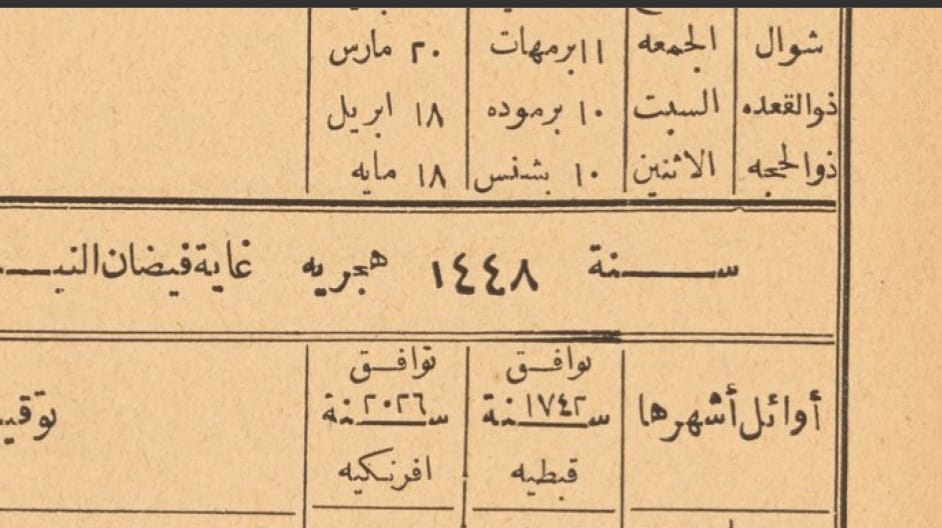 شوال الجمعه ١١ برمهات ٢٠ مارس
ذوالقعده السبت ١٠ برموده ١٨ ابريل
ذوالحجه الاثنين ١٠ بشنس ١٨ مايه
سنة ١٤٤٨ هجريه غاية فيضان
أوائل أشهرها
توافق
سنة ١٧٤٢
قبطيه
توافق
سنة ٢٠٢٦
افرنكيه